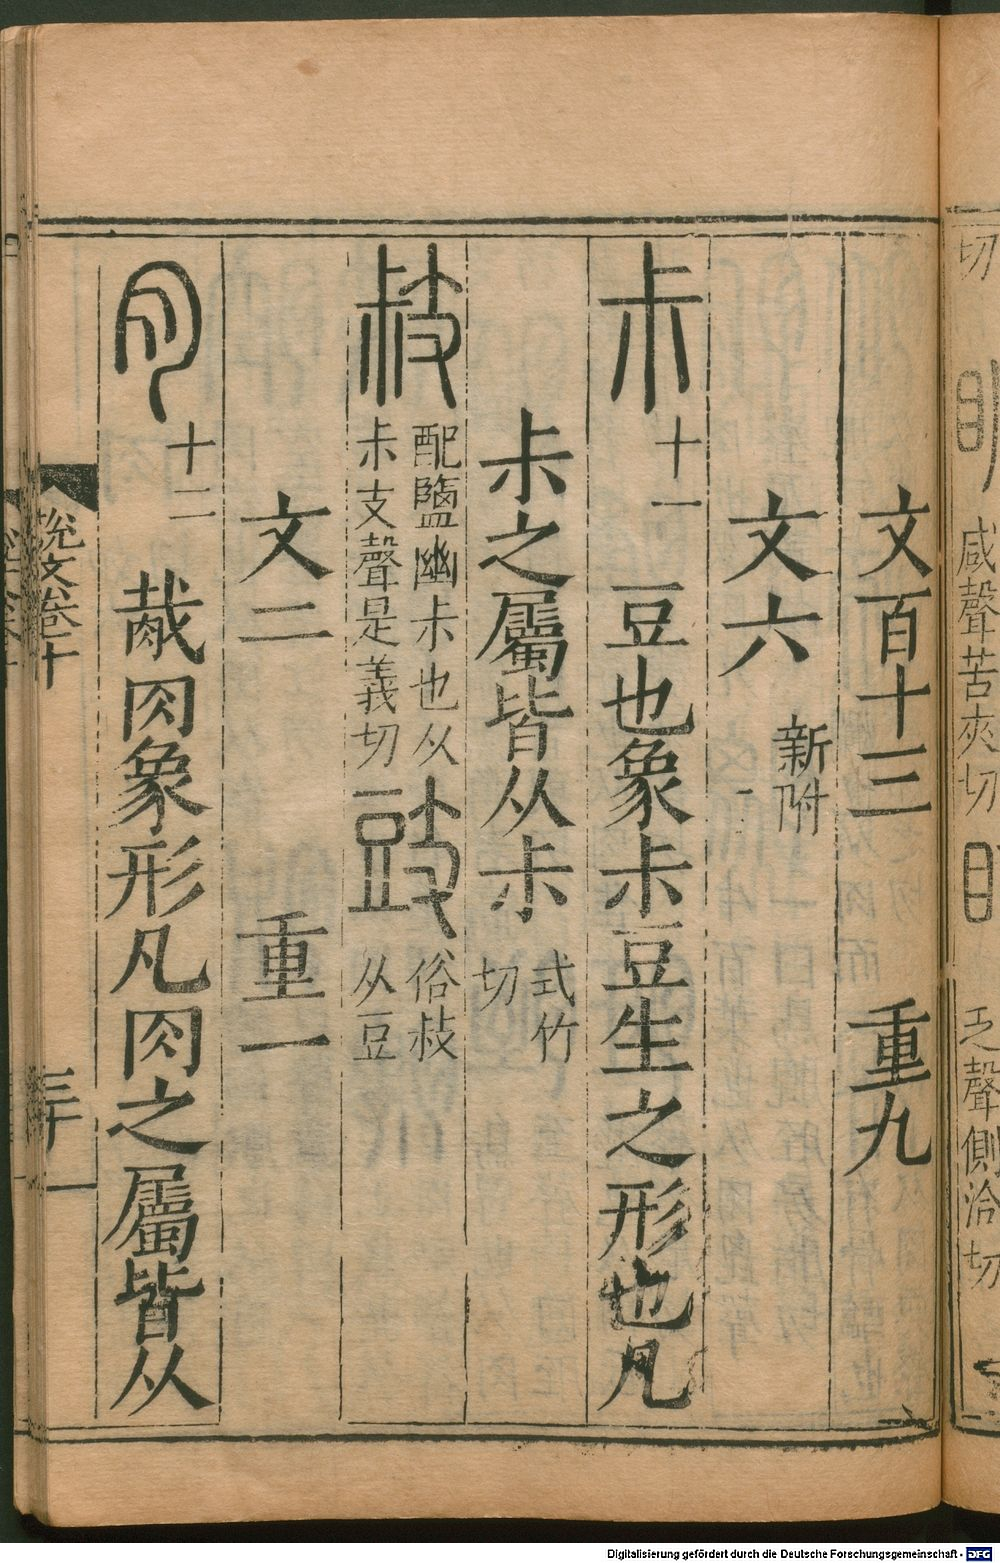 切
咸聲苦夾切
乏聲側洽切
文百十三　重九
文六　新附
尗　十一　豆也象尗豆生之形也凡
尗之屬皆从尗　式竹切
𢻃　配鹽幽尗也从尗支聲是義切　豉　俗𢻃从豆
文二　重一
肉　十二　胾肉象形凡肉之屬皆从
說文卷十
Digitalisierung gefördert durch die Deutsche Forschungsgemeinschaft - DFG